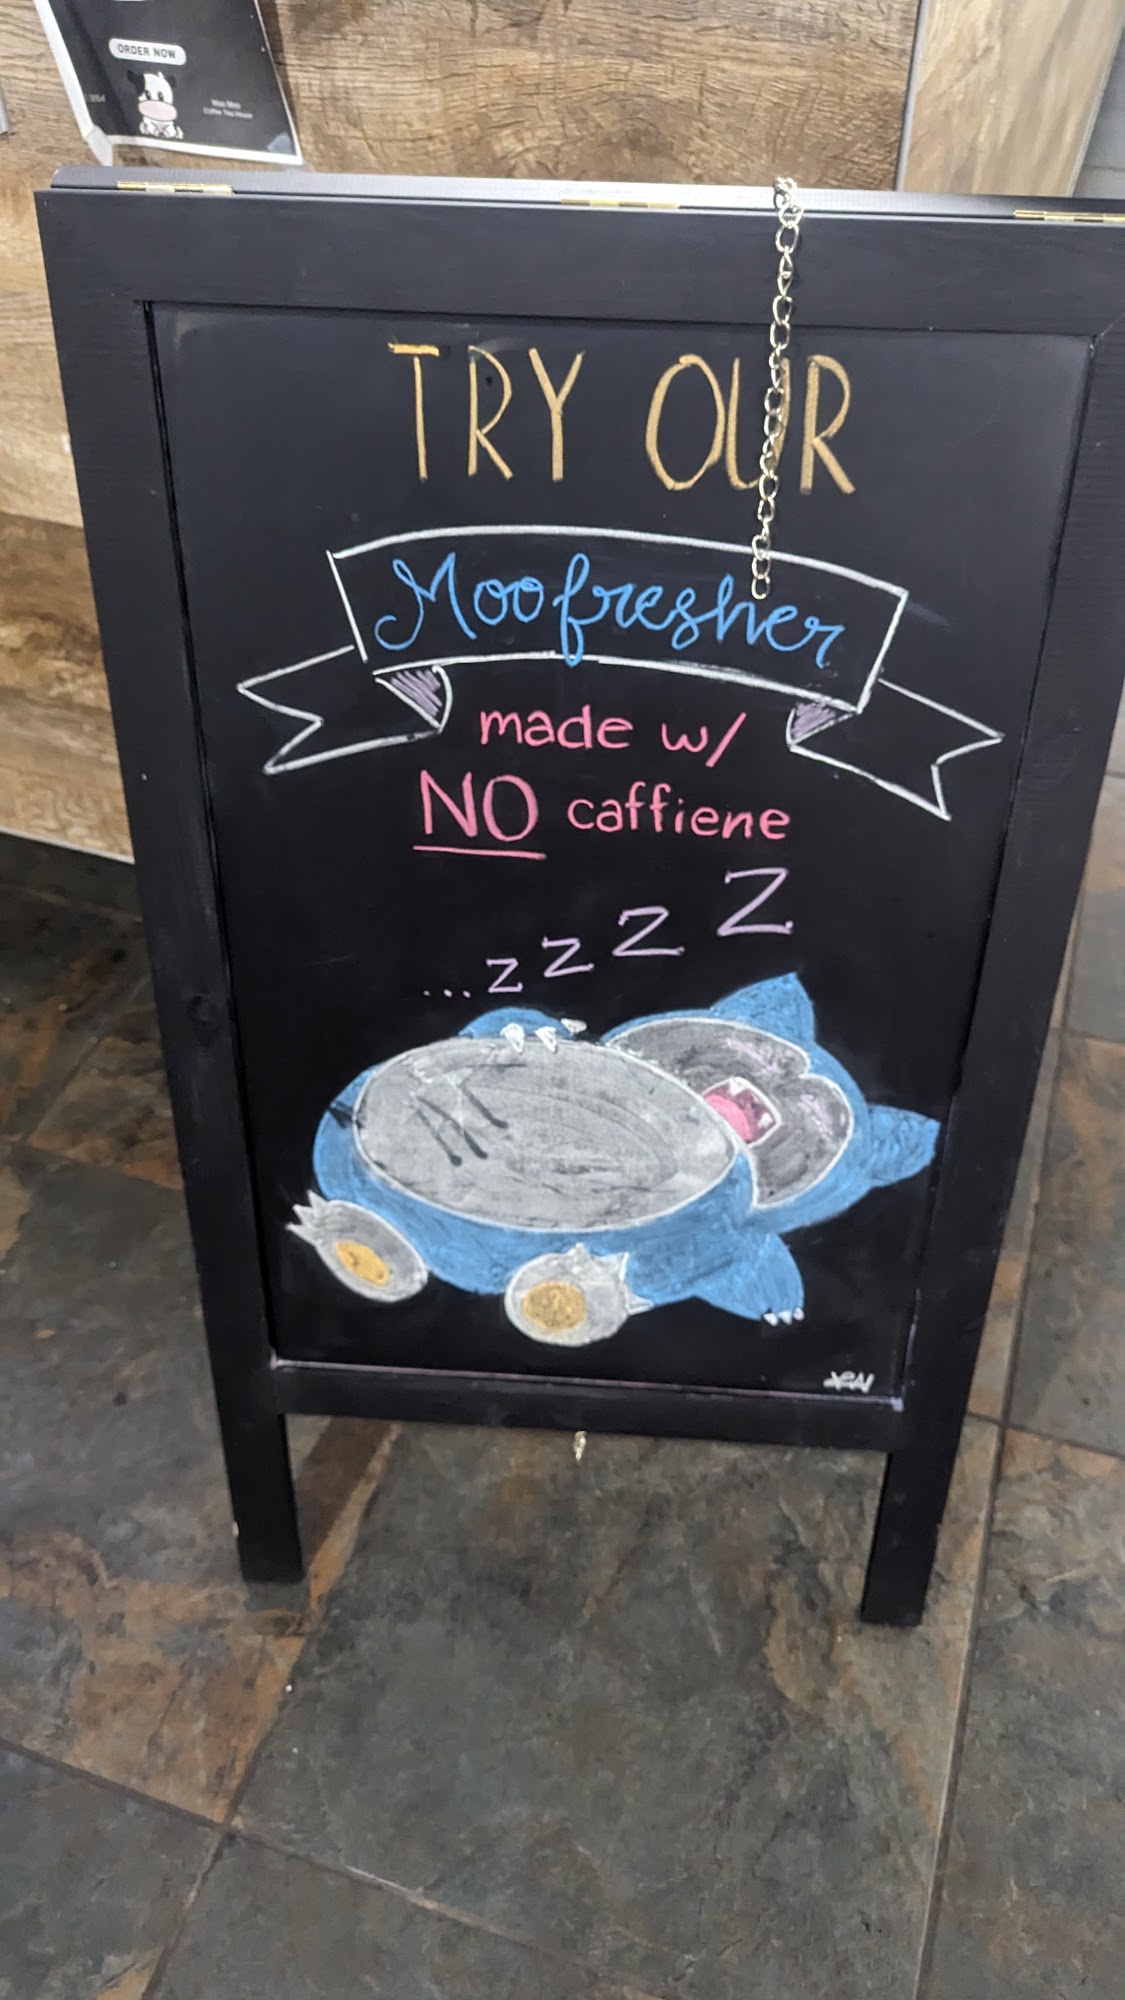 ORDER NOW
Moo Moo
Coffee Tea House
TRY OUR
Moofresher
made w/
NO caffiene
...z z z z